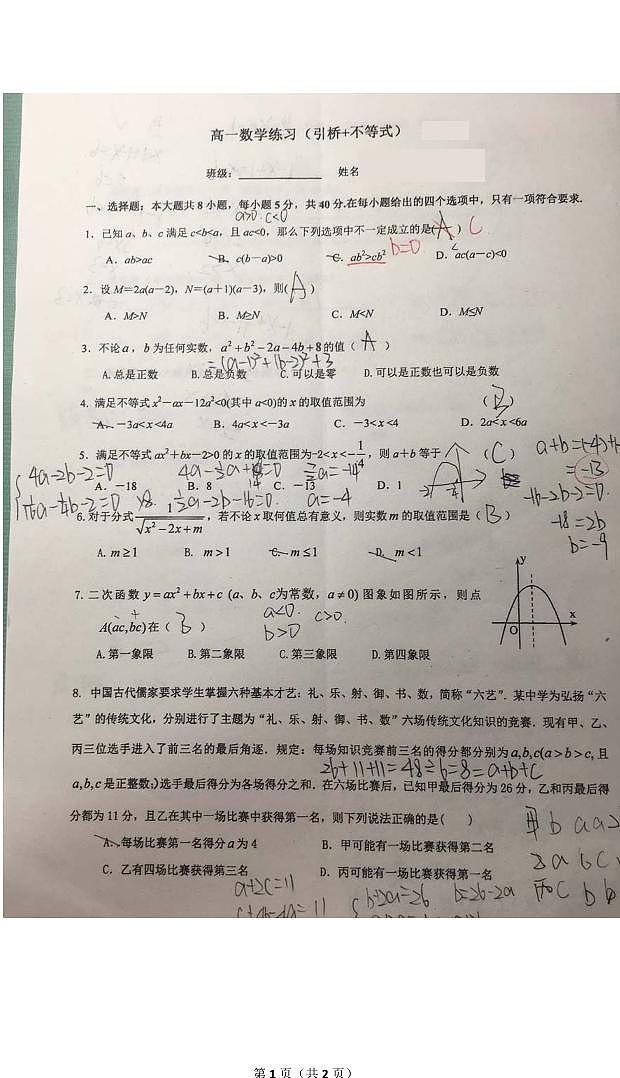 高一数学练习（引桥+不等式）
班级：＿＿＿＿＿＿ 姓名
一、选择题：本大题共 8 小题，每小题 5 分，共 40 分.在每小题给出的四个选项中，只有一项符合要求.
a>0 c<0
1．已知 a、b、c 满足 c<b<a，且 ac<0，那么下列选项中不一定成立的是( A ) C
A．ab>ac B．c(b－a)>0 C．ab²>cb² b=0 D．ac(a－c)<0
2．设 M=2a(a－2)，N=(a＋1)(a－3)，则( A )
A．M>N B．M≥N C．M<N D．M≤N
3．不论 a，b 为任何实数，a²+b²－2a－4b+8 的值（ A ）
=(a-1)²+(b-2)²+3
A.总是正数 B.总是负数 C.可以是零 D.可以是正数也可以是负数
4. 满足不等式 x²－ax－12a²<0(其中 a<0)的 x 的取值范围为 （ B ）
A．－3a<x<4a B．4a<x<－3a C．－3<x<4 D．2a<x<6a
5．满足不等式 ax²＋bx－2>0 的 x 的取值范围为-2<x<－1/4，则 a＋b 等于 （ C ） a+b=(-4)+
4a-2b-2=0 =-13
A．－18 B．8 C．－13 D．1
a=-4 -16-2b-2=0
6.对于分式 1/√(x²－2x+m)，若不论 x 取何值总有意义，则实数 m 的取值范围是（ B ） -18=2b
b=-9
A. m≥1 B. m>1 C. m≤1 D. m<1
7. 二次函数 y=ax²+bx+c (a、b、c为常数，a≠0) 图象如图所示，则点
A(ac,bc)在（ B ） a<0. c>0.
b>0
A.第一象限 B.第二象限 C.第三象限 D.第四象限
y
O x
8．中国古代儒家要求学生掌握六种基本才艺：礼、乐、射、御、书、数，简称“六艺”．某中学为弘扬“六
艺”的传统文化，分别进行了主题为“礼、乐、射、御、书、数”六场传统文化知识的竞赛．现有甲、乙、
丙三位选手进入了前三名的最后角逐．规定：每场知识竞赛前三名的得分都分别为 a,b,c(a>b>c,且
26+11+11=48÷6=8=a+b+c
a,b,c 是正整数;)选手最后得分为各场得分之和．在六场比赛后，已知甲最后得分为 26 分，乙和丙最后得
分都为 11 分，且乙在其中一场比赛中获得第一名，则下列说法正确的是( )
A．每场比赛第一名得分 a 为 4 B．甲可能有一场比赛获得第二名
C．乙有四场比赛获得第三名 D．丙可能有一场比赛获得第一名
甲 b a a
a b c
丙 c b b
a+2c=11
b+2a=26 b=26-2a
第 1 页（共 2 页）